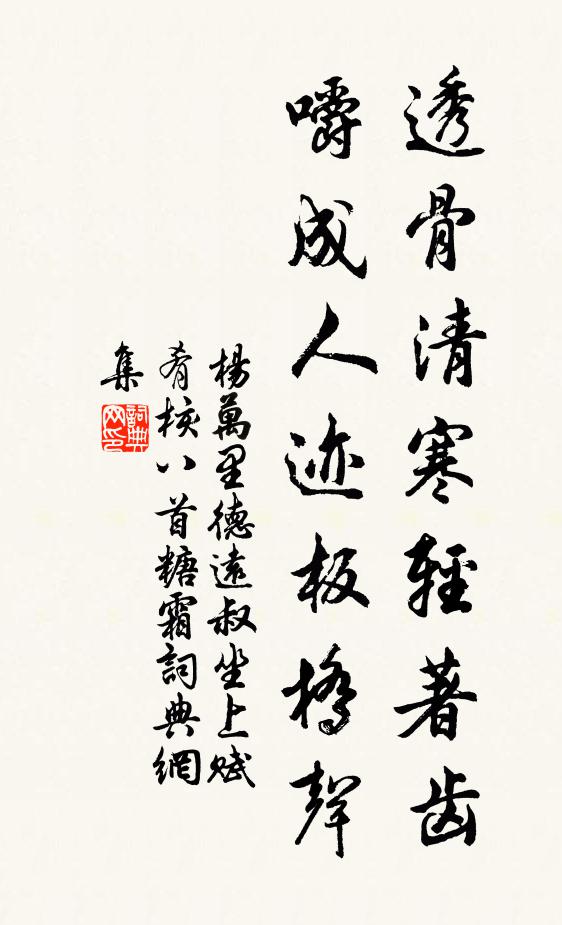 透骨清寒輕著齿
嚼成人迹板橋聲
楊萬里德遠叔坐上賦
肴核八首糖霜詞典網
集
詞典
网印